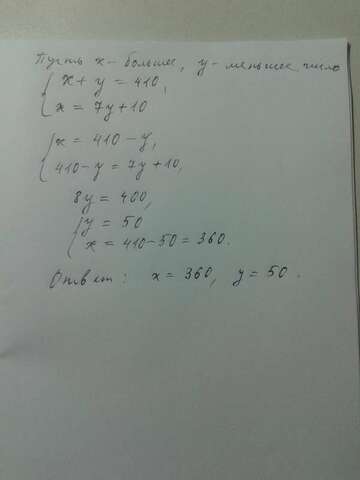 Пусть x - большее, y - меньшее число
x + y = 410,
x = 7y + 10
x = 410 - y,
410 - y = 7y + 10,
8y = 400,
y = 50
x = 410 - 50 = 360.
Ответ: x = 360, y = 50.